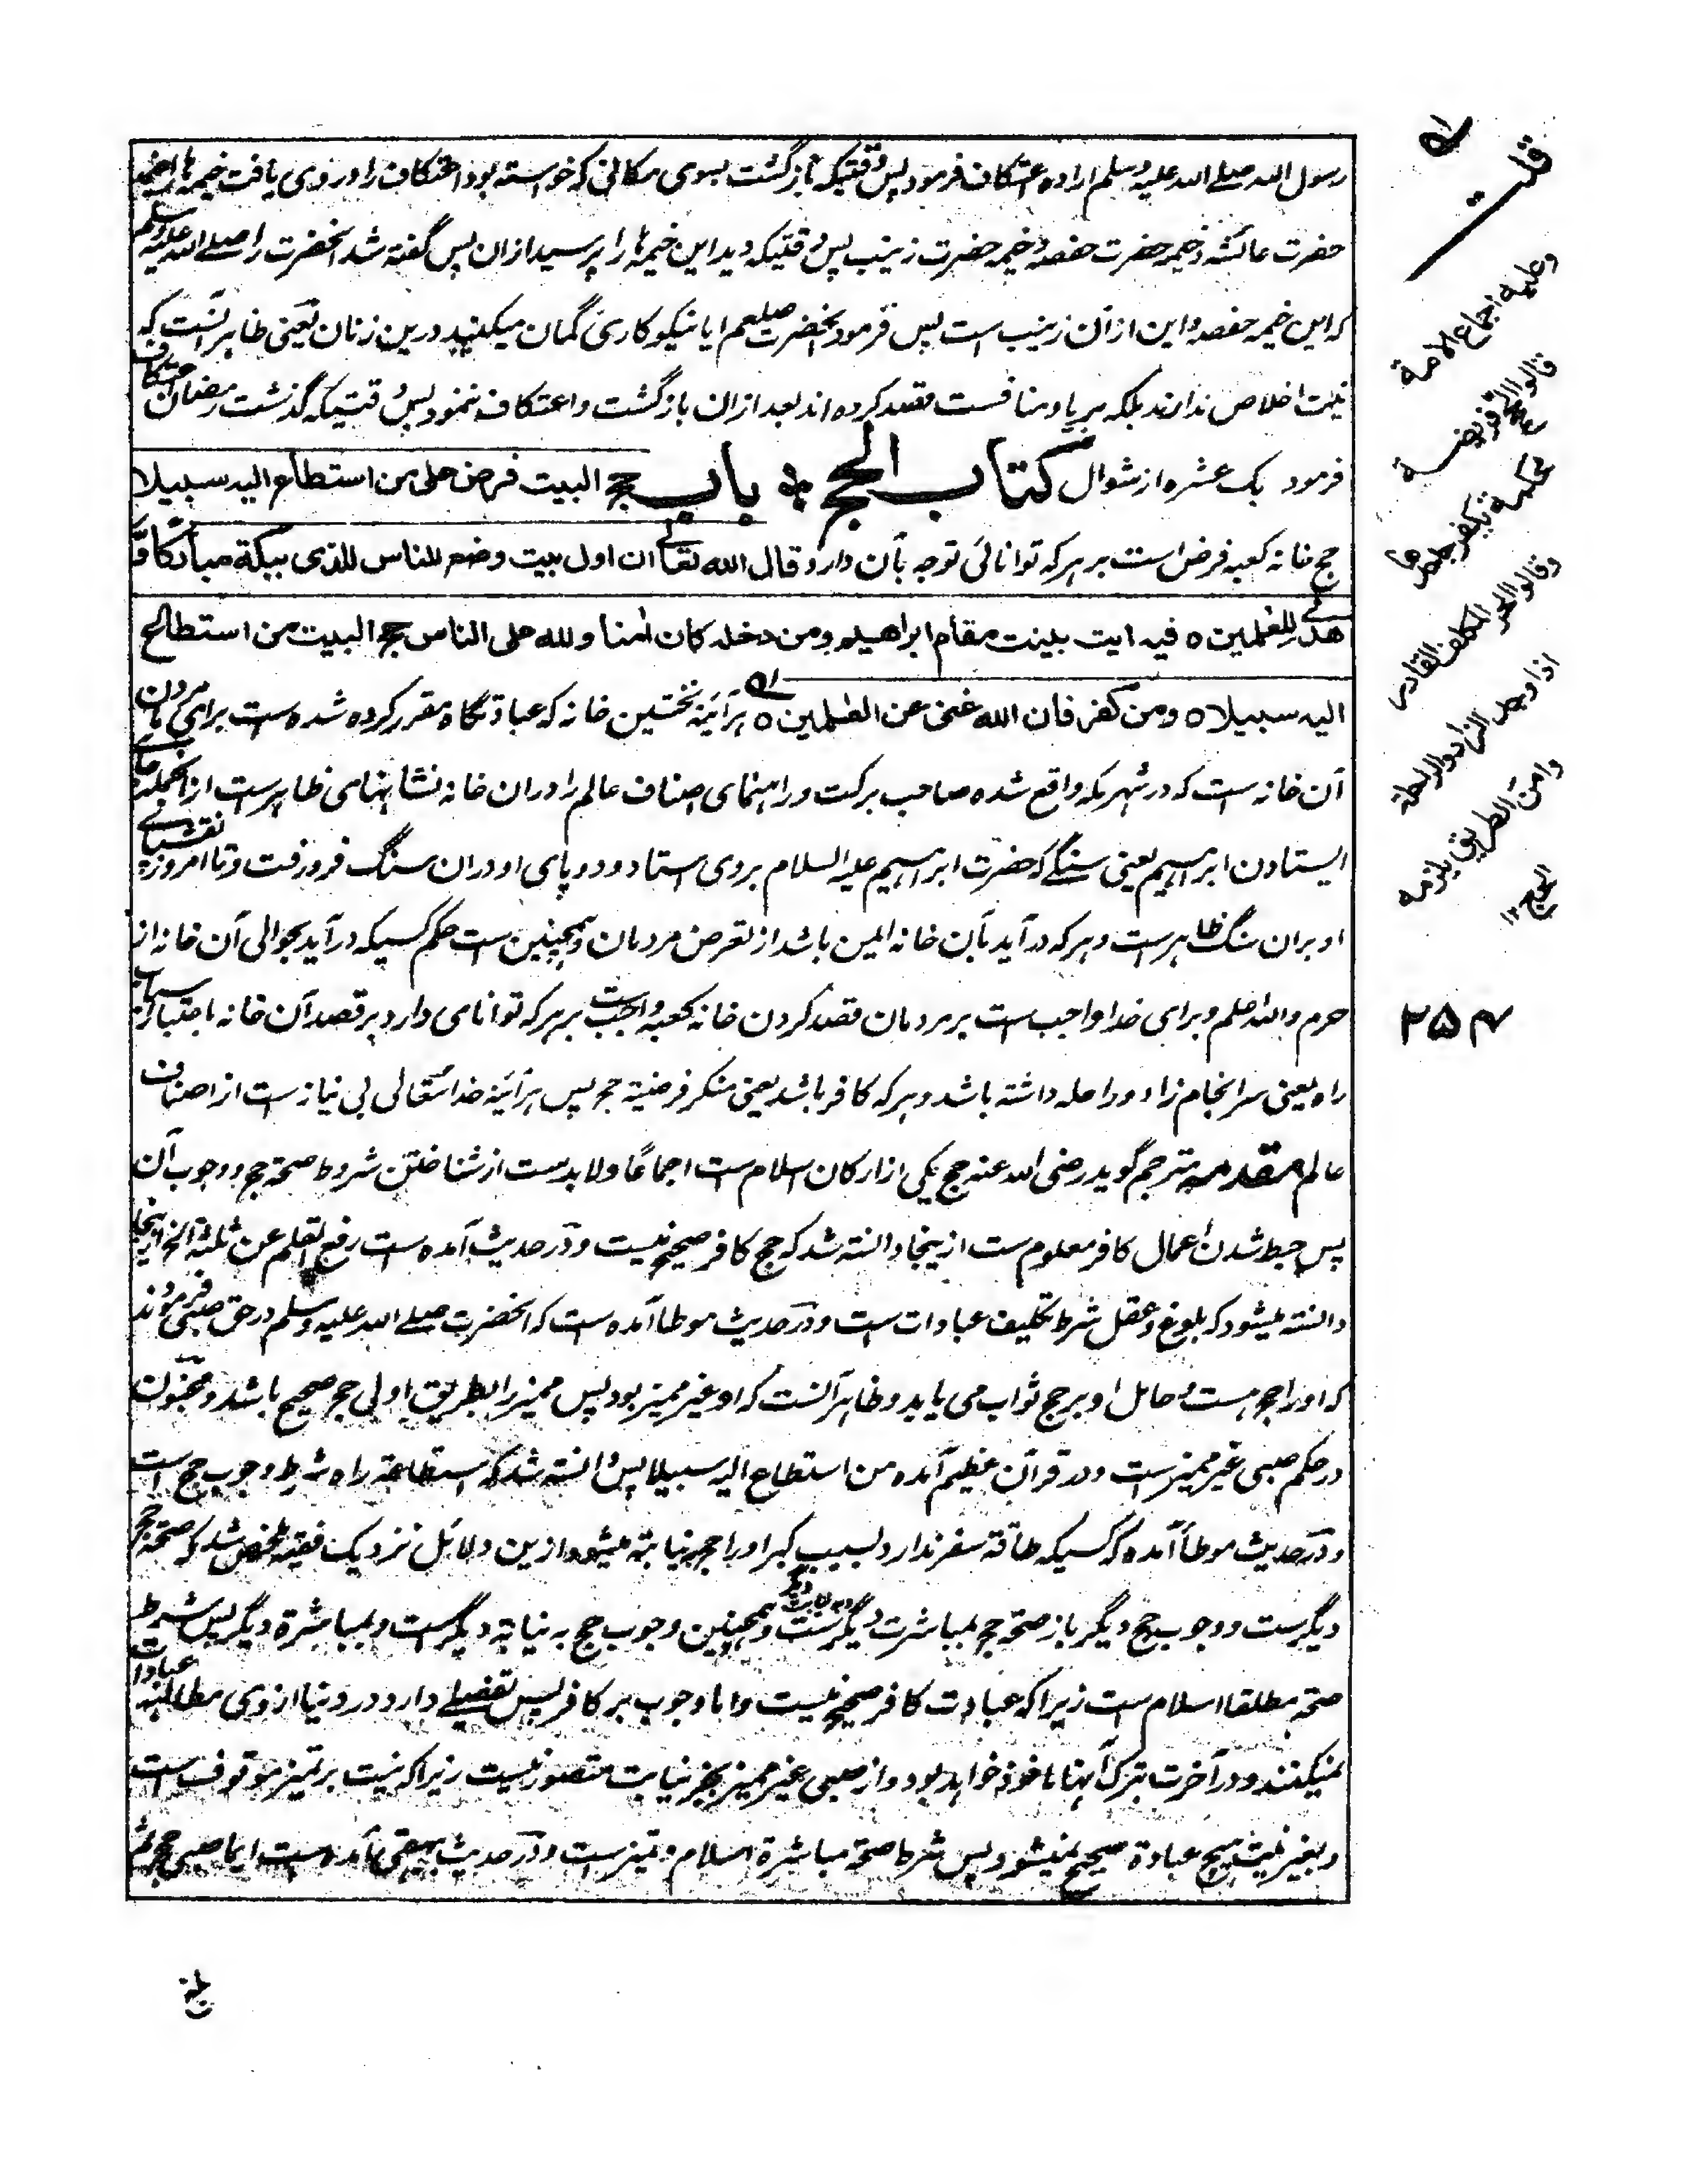 رسول الله صلے الله علیه وسلم اراده اعتکاف فرمود پس وقتیکه بازگشت بسوی مکانی که خواسته بود اعتکاف را در وی یافت خیمه ها را خیمه
حضرت عائشه و خیمه حضرت حفصه و خیمه حضرت زینب پس وقتیکه دید این خیمه ها را پرسید ازان پس گفته شد آنحضرت را صلے الله علیه وسلم
که این خیمه حفصه و این از آن زینب است پس فرمود آنحضرت صلعم ایا نیکوکاری گمان میکنید درین زنان یعنی ظاهر آنست که
نیت اخلاص ندارند بلکه بریا و منافست قصد کرده اند بعد ازان بازگشت و اعتکاف ننمود پس وقتیکه گذشت رمضان اعتکاف
فرمود یک عشره از شوال کتاب الحج ⁂ باب حج البیت فرض علی من استطاع الیه سبیلا
حج خانه کعبه فرض است بر هر که توانائی توجه بآن دارد قال الله تعالے ان اول بیت وضع للناس للذی ببکة مبارکا و
هدے للعلمین ٥ فیه ایت بینت مقام ابراهیم ومن دخله کان امنا ولله علی الناس حج البیت من استطاع
الیه سبیلا ٥ ومن کفر فان الله غنی عن العلمین ٥ هر آئینه نخستین خانه که عبادتگاه مقرر کرده شده است برای مردمان
آن خانه است که در شهر مکه واقع شده صاحب برکت و راهنمای اصناف عالم را دران خانه نشانهای ظاهرست ازانجمله جای
ایستادن ابرهیم یعنی سنگے که حضرت ابرهیم علیه السلام بروی استاد و دو پای او دران سنگ فرو رفت و تا امروز نقش پائے
او بران سنگ ظاهرست و هر که در آید بآن خانه ایمن باشد از تعرض مردمان و همچنین ست حکم کسیکه در آید بحوالی آن خانه از
حرم والله اعلم و برای خدا واجب ست بر مردمان قصد کردن خانه کعبه واجب است بر هر که توانای دارد بر قصد آن خانه باعتبار اسباب
راه یعنی سرانجام زاد و راحله داشته باشد و هر که کافر باشد یعنی منکر فرضیة حج پس هر آئینه خدا تعالی بی نیازست از اصناف
عالم مقدمه مترجم گوید رضی الله عنه حج یکی از ارکان اسلام ست اجماعًا و لا بدست از شناختن شروط صحة حج و وجوب آن
پس حبط شدن اعمال کافر معلوم ست ازینجا دانسته شد که حج کافر صحیح نیست و در حدیث آمده ست رفع القلم عن ثلثة الخ ازینجا
دانسته میشود که بلوغ و عقل شرط تکلیف عبادات ست و در حدیث موطا آمده ست که آنحضرت صلے الله علیه وسلم در حق صبی فرمودند
که او را حج هست و حامل او بر حج ثواب می یابد و ظاهر آنست که او غیر ممیز بود پس ممیز را بطریق اولی حج صحیح باشد و مجنون
در حکم صبی غیر ممیزست و در قرآن عظیم آمده من استطاع الیه سبیلا پس دانسته شد که استطاعة راه شرط وجوب حج است
و در حدیث موطا آمده که کسیکه طاقة سفر ندارد بسبب کبر او را حج بنیابته میشود ازین دلائل نزدیک فقیه ملخص شد که صحة حج
دیگرست و وجوب حج دیگر باز صحة حج بمباشرت دیگرست و به نیابت دیگر و همچنین وجوب حج به نیابة دیگرست و بمباشرة دیگر پس شرط
صحة مطلقا اسلام ست زیرا که عبادت کافر صحیح نیست و اما وجوب بر کافر پس تفصیلے دارد در دنیا از وی مطالبه عبادات
نمیکنند و در آخرت بترک آنها ماخوذ خواهد بود و از صبی غیر ممیز بجز نیابت متصور نیست زیرا که نیت بر تمیز موقوف ست
و بغیر نیت هیچ عبادة صحیح نمیشود پس شرط صحة مباشرة اسلام و تمیزست و در حدیث بیهقی آمده ست ایما صبی حج ثم
قلت
وعلیه اجماع الامة
قالوا الحج فریضة
محکمة یکفر جاحدها
وقالوا الحر المکلف القادر
اذا وجد الزاد والراحلة
وامن الطریق یلزمه
الحج ١٢
٢٥٣
بلغ